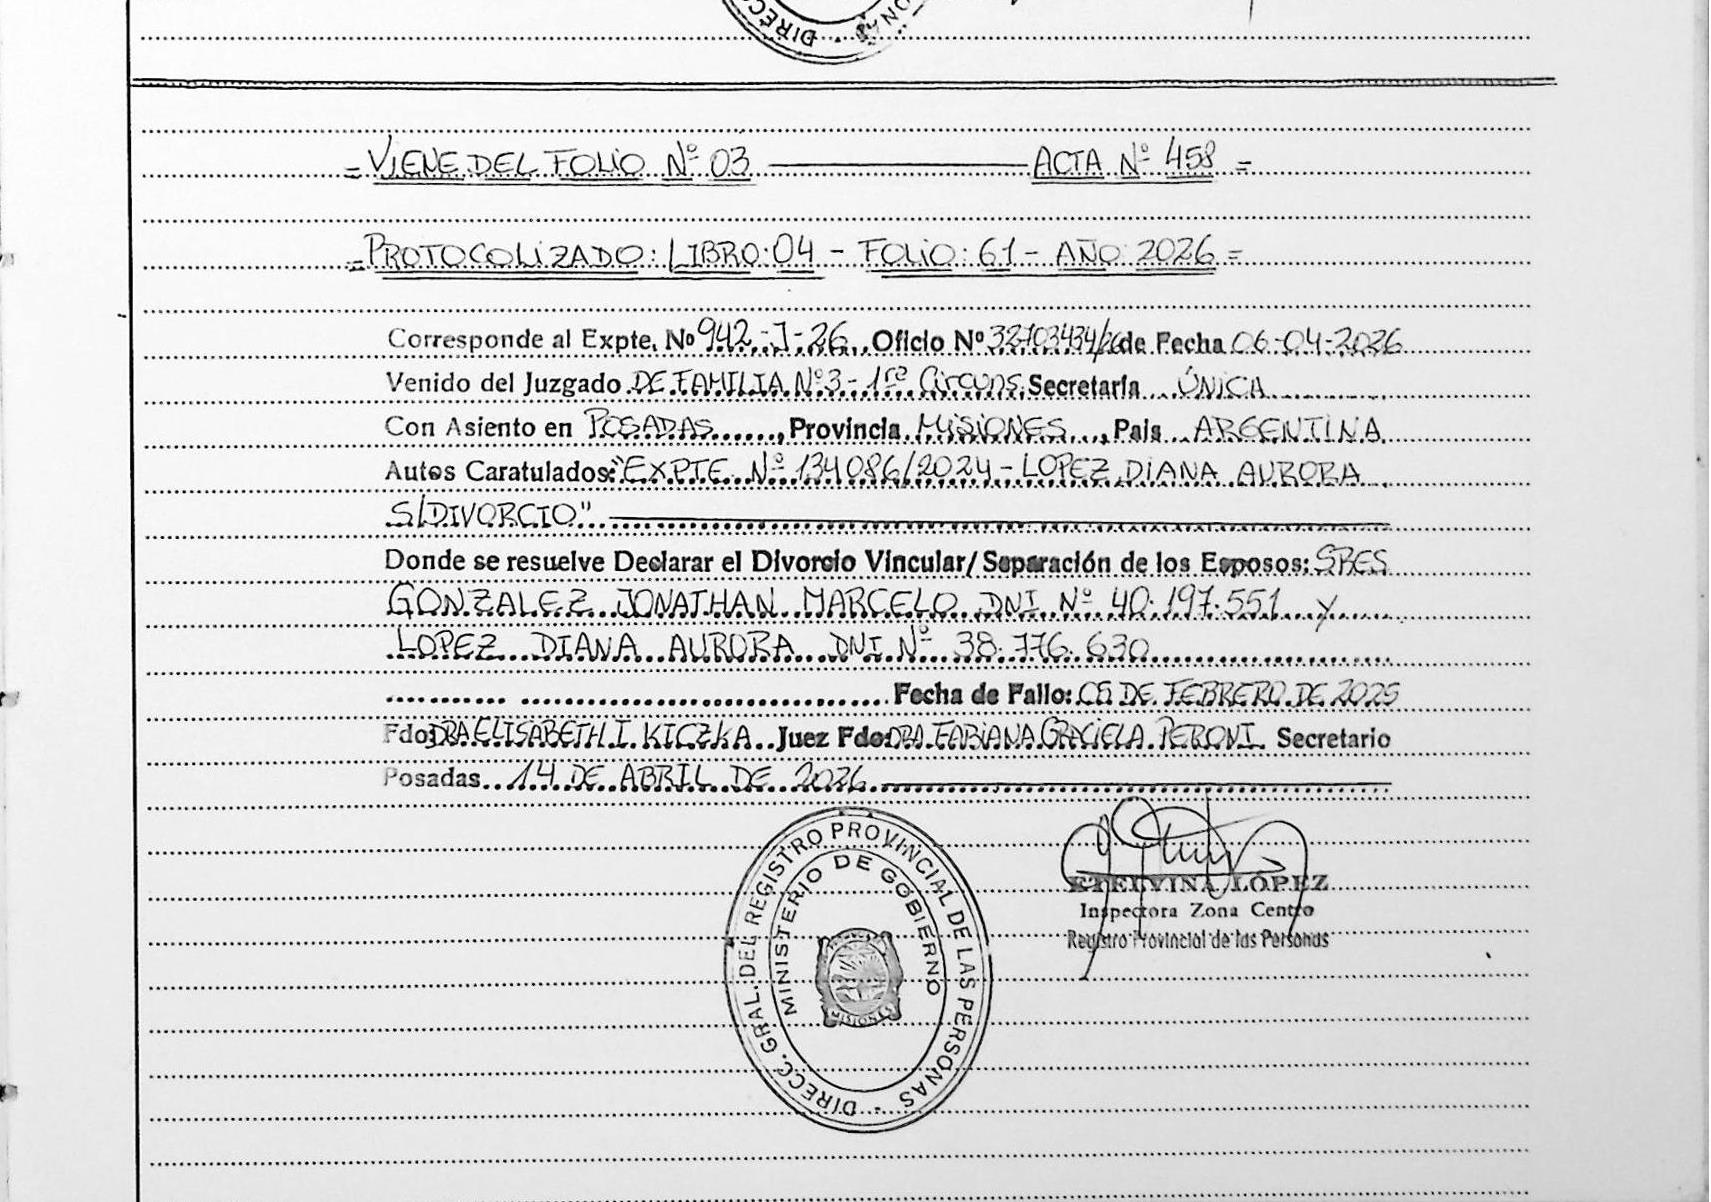 DIRECC
=VIENE DEL FOLIO Nº 03 ACTA Nº 458=
=PROTOCOLIZADO: LIBRO: 04 - FOLIO: 61 - AÑO 2026=
Corresponde al Expte. Nº 942-J-26 Oficio Nº 32103434/26 de Fecha 06-04-2026
Venido del Juzgado DE FAMILIA Nº3-1ra Circuns. Secretaría ÚNICA
Con Asiento en POSADAS, Provincia MISIONES, País ARGENTINA
Autos Caratulados: "EXPTE Nº 134086/2024 - LOPEZ DIANA AURORA
S/DIVORCIO"
Donde se resuelve Declarar el Divorcio Vincular/Separación de los Esposos: SRES
GONZALEZ JONATHAN MARCELO DNI Nº 40.197.551 y
LOPEZ DIANA AURORA DNI Nº 38.776.630
Fecha de Fallo: 05 DE FEBRERO DE 2025
Fdo: DRA ELISABETH I. KICZKA Juez Fdo: DRA. FABIANA GRACIELA PERONI Secretario
Posadas 14 DE ABRIL DE 2026
DIRECC. GRAL. DEL REGISTRO PROVINCIAL DE LAS PERSONAS
MINISTERIO DE GOBIERNO
MISIONES
ETELVINA LÓPEZ
Inspectora Zona Centro
Registro Provincial de las Personas